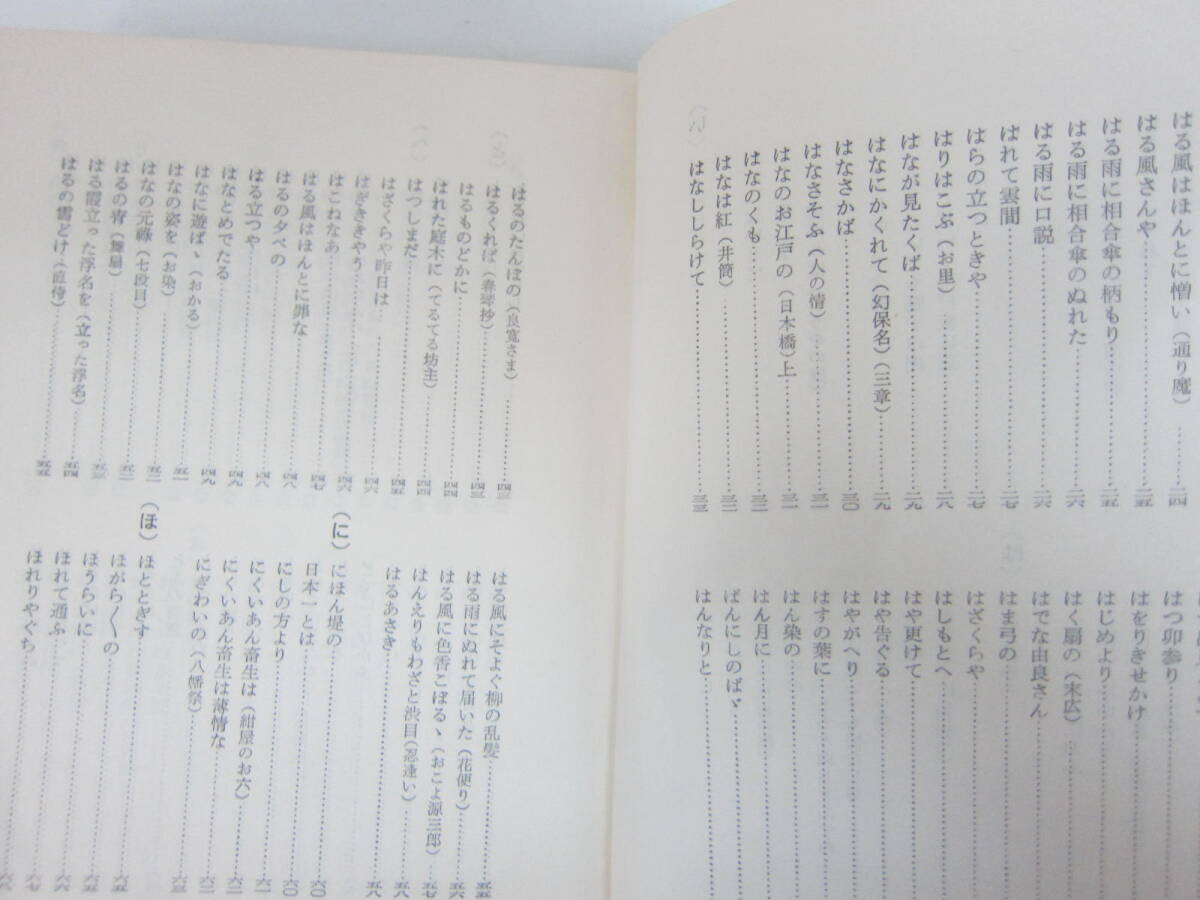 はる風はほんとに憎い（通り魔）……二四
はる風さんや……二五
はる雨に相合傘の柄もり……二五
はる雨に相合傘のぬれた……二六
はる雨に口説……二六
はれて雲間……二七
はらの立つときや……二七
はりはこぶ（お里）……二八
はなが見たくば……二九
はなにかくれて（幻保名）（三章）……二九
はなさかば……三〇
はなさそふ（人の情）……三一
はなのお江戸の（日本橋）上……三一
はなのくも……三二
はなは紅（井筒）……三二
はなししらけて……三三
はつ卯参り
はをりきせかけ
はじめより
はく扇の（末広）
はでな由良さん
はま弓の
はざくらや
はしもとへ
はや更けて
はや告ぐる
はやがへり
はすの葉に
はん染の
はん月に
ばんにしのばゞ
はんなりと
はるのたんぽの（良寛さま）……四三
はるくれば（春琴抄）……四三
はるものどかに……四四
はれた庭木に（てるてる坊主）……四四
はつしまだ……四五
はざくらや昨日は……四六
はぎききやう……四六
はこねなあ……四六
はる風はほんとに罪な……四七
はるの夕べの……四八
はる立つや……四八
はなとめでたる……四九
はなに遊ばゝ（おかる）……四九
はなの姿を（お染）……五一
はなの元禄（七段目）……五二
はるの宵（舞扇）……五二
はる霞立った浮名を（立った浮名）……五三
はるの雪どけ（直侍）……五四
……五五
はる風にそよぐ柳の乱髪……五五
はる雨にぬれて届いた（花便り）……五六
はる風に色香こぼるゝ（おこよ源三郎）……五七
はんえりもわざと渋目（忍逢い）……五八
はるあさき……五八
（に）にほん堤の……六〇
日本一とは……六〇
にしの方より……六一
にくいあん畜生は（紺屋のお六）……六二
にくいあん畜生は薄情な……六二
にぎわいの（八幡祭）……六三
（ほ）ほととぎす……六五
ほがら〱の……六五
ほうらいに……六五
ほれて通ふ……六六
ほれりやぐち……六七
……六八